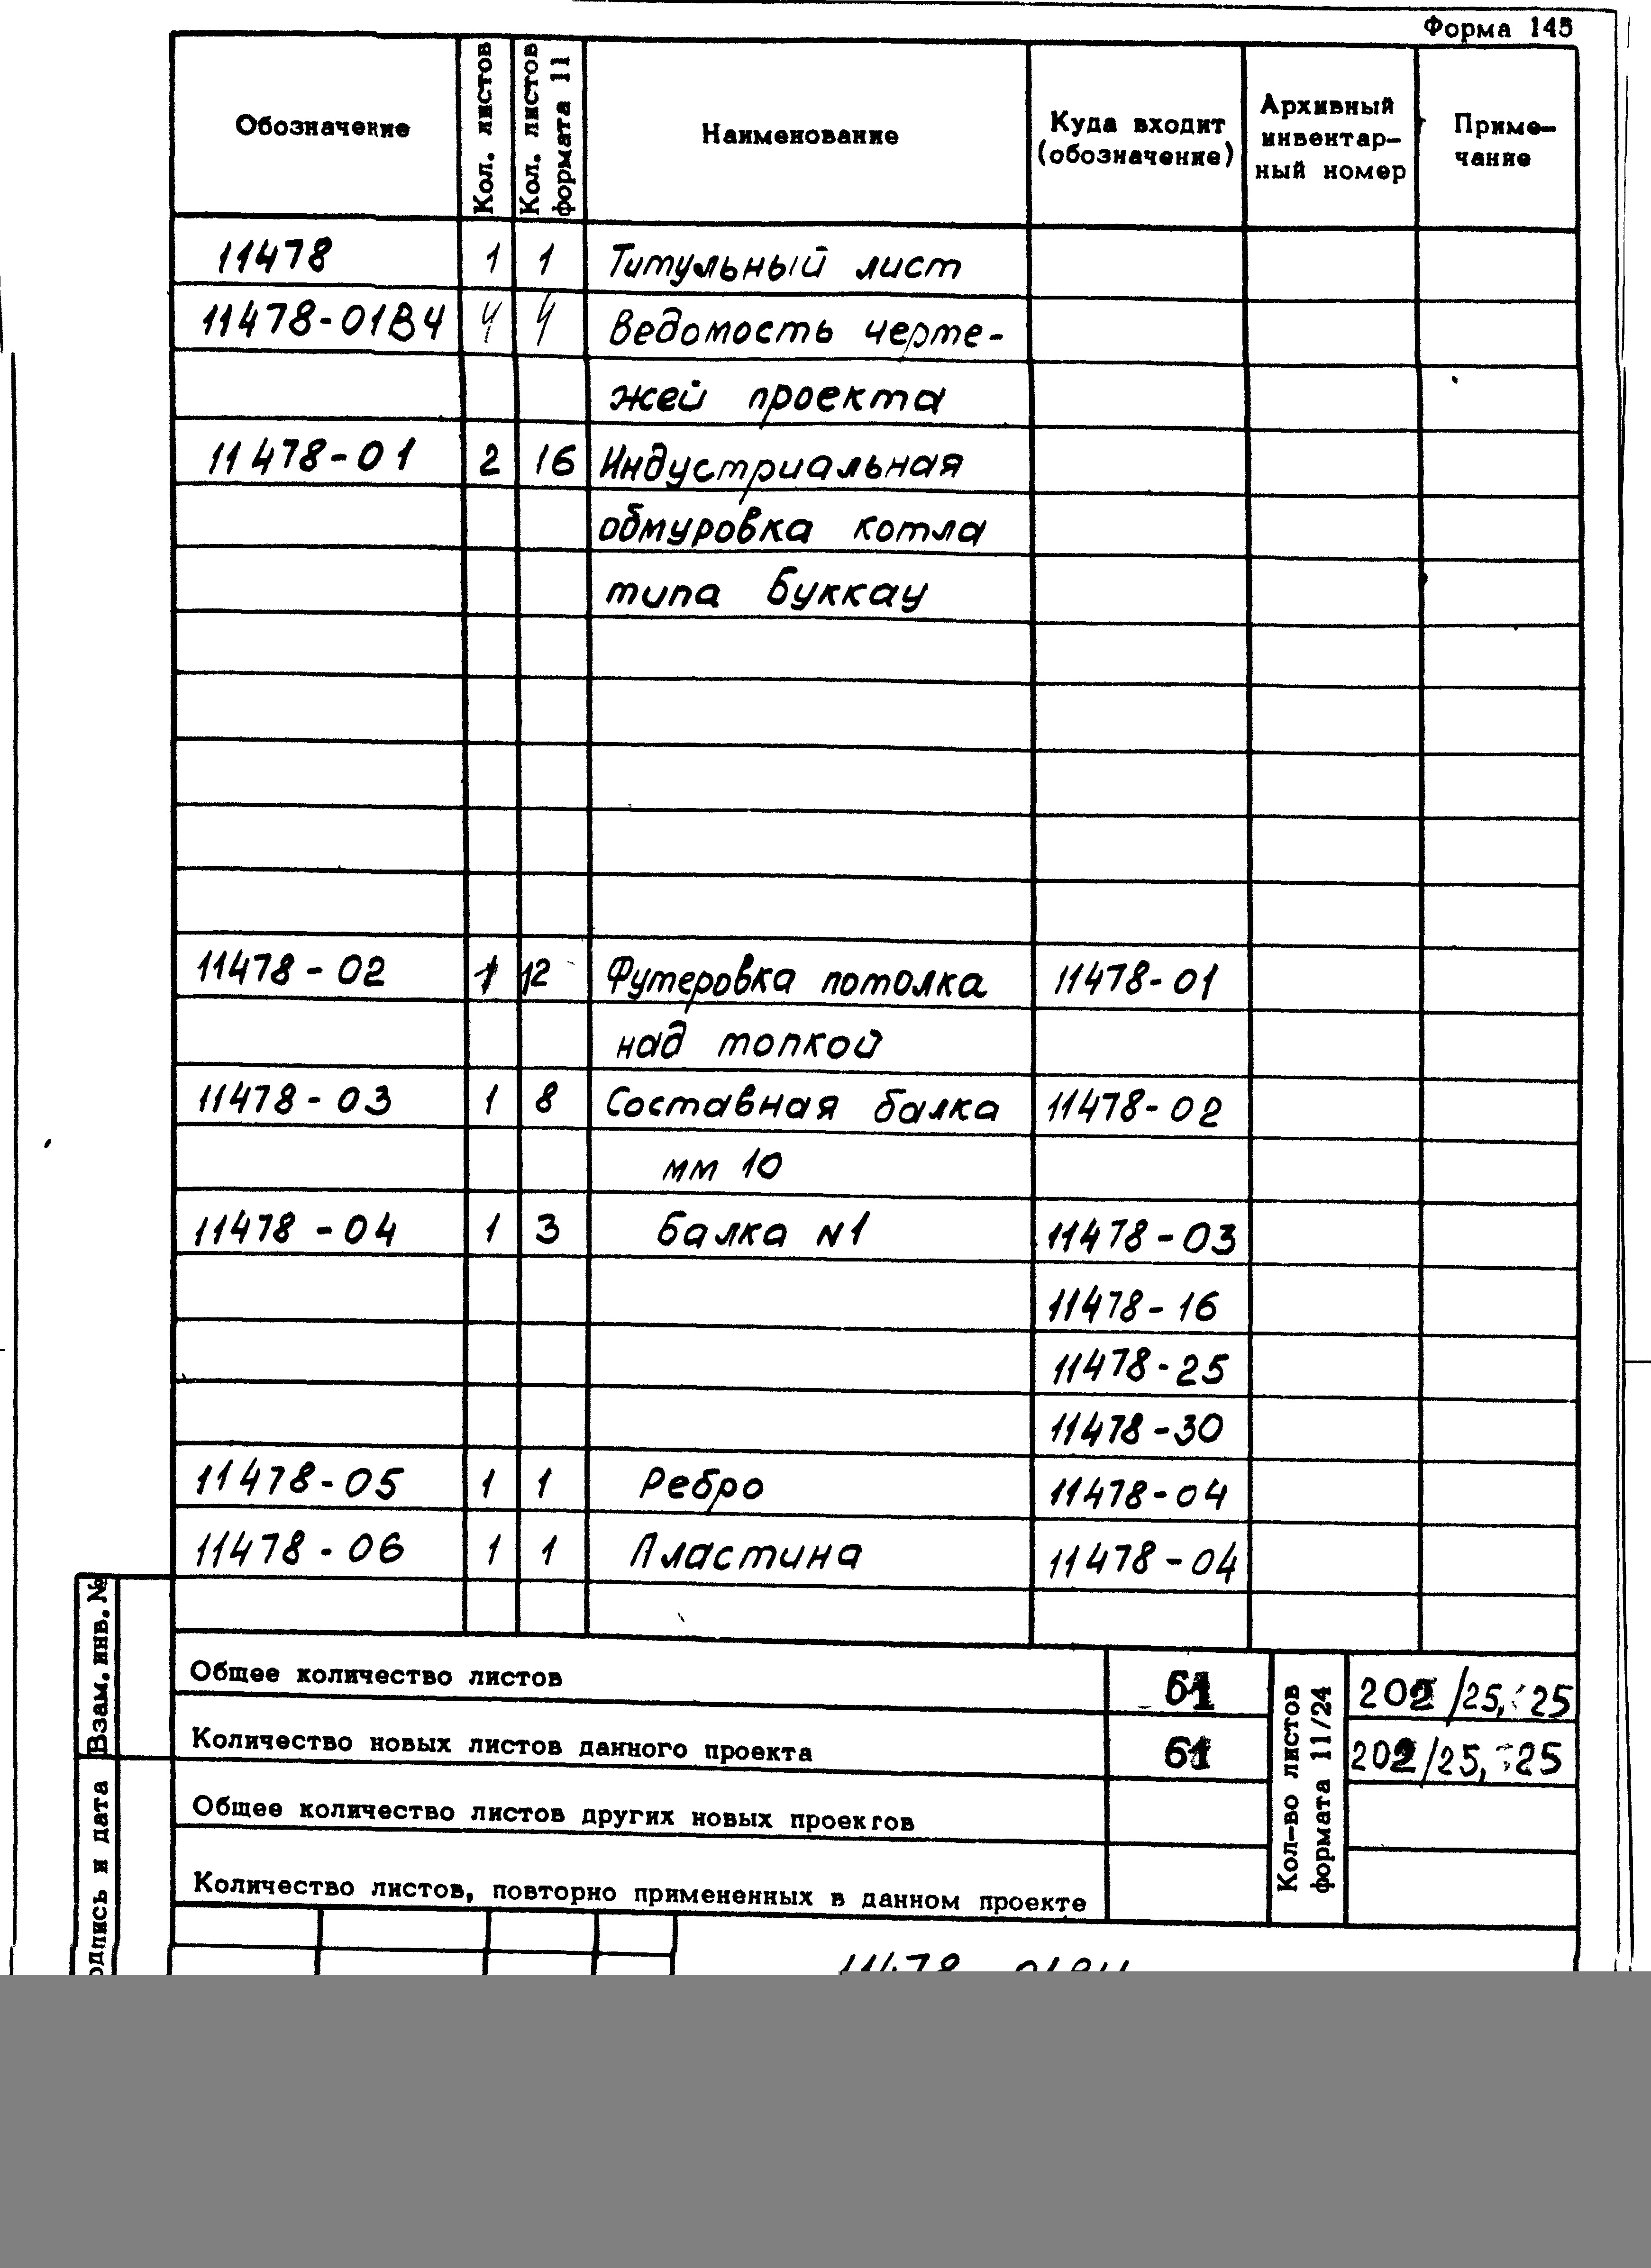 Форма 145
Обозначение Кол. листов Кол. листов формата 11 Наименование Куда входит (обозначение) Архивный инвентар- ный номер Приме- чание
11478 1 1 Титульный лист
11478-01ВЧ 4 4 Ведомость черте-
жей проекта
11478-01 2 16 Индустриальная
обмуровка котла
типа Буккау
11478-02 1 12 Футеровка потолка 11478-01
над топкой
11478-03 1 8 Составная балка 11478-02
мм 10
11478-04 1 3 Балка N1 11478-03
11478-16
11478-25
11478-30
11478-05 1 1 Ребро 11478-04
11478-06 1 1 Пластина 11478-04
Взам. инв. №
Общее количество листов 61 Кол-во листов формата 11/24 202/25, 25
Количество новых листов данного проекта 61 202/25, 25
Общее количество листов других новых проектов
Количество листов, повторно примененных в данном проекте
одпись и дата